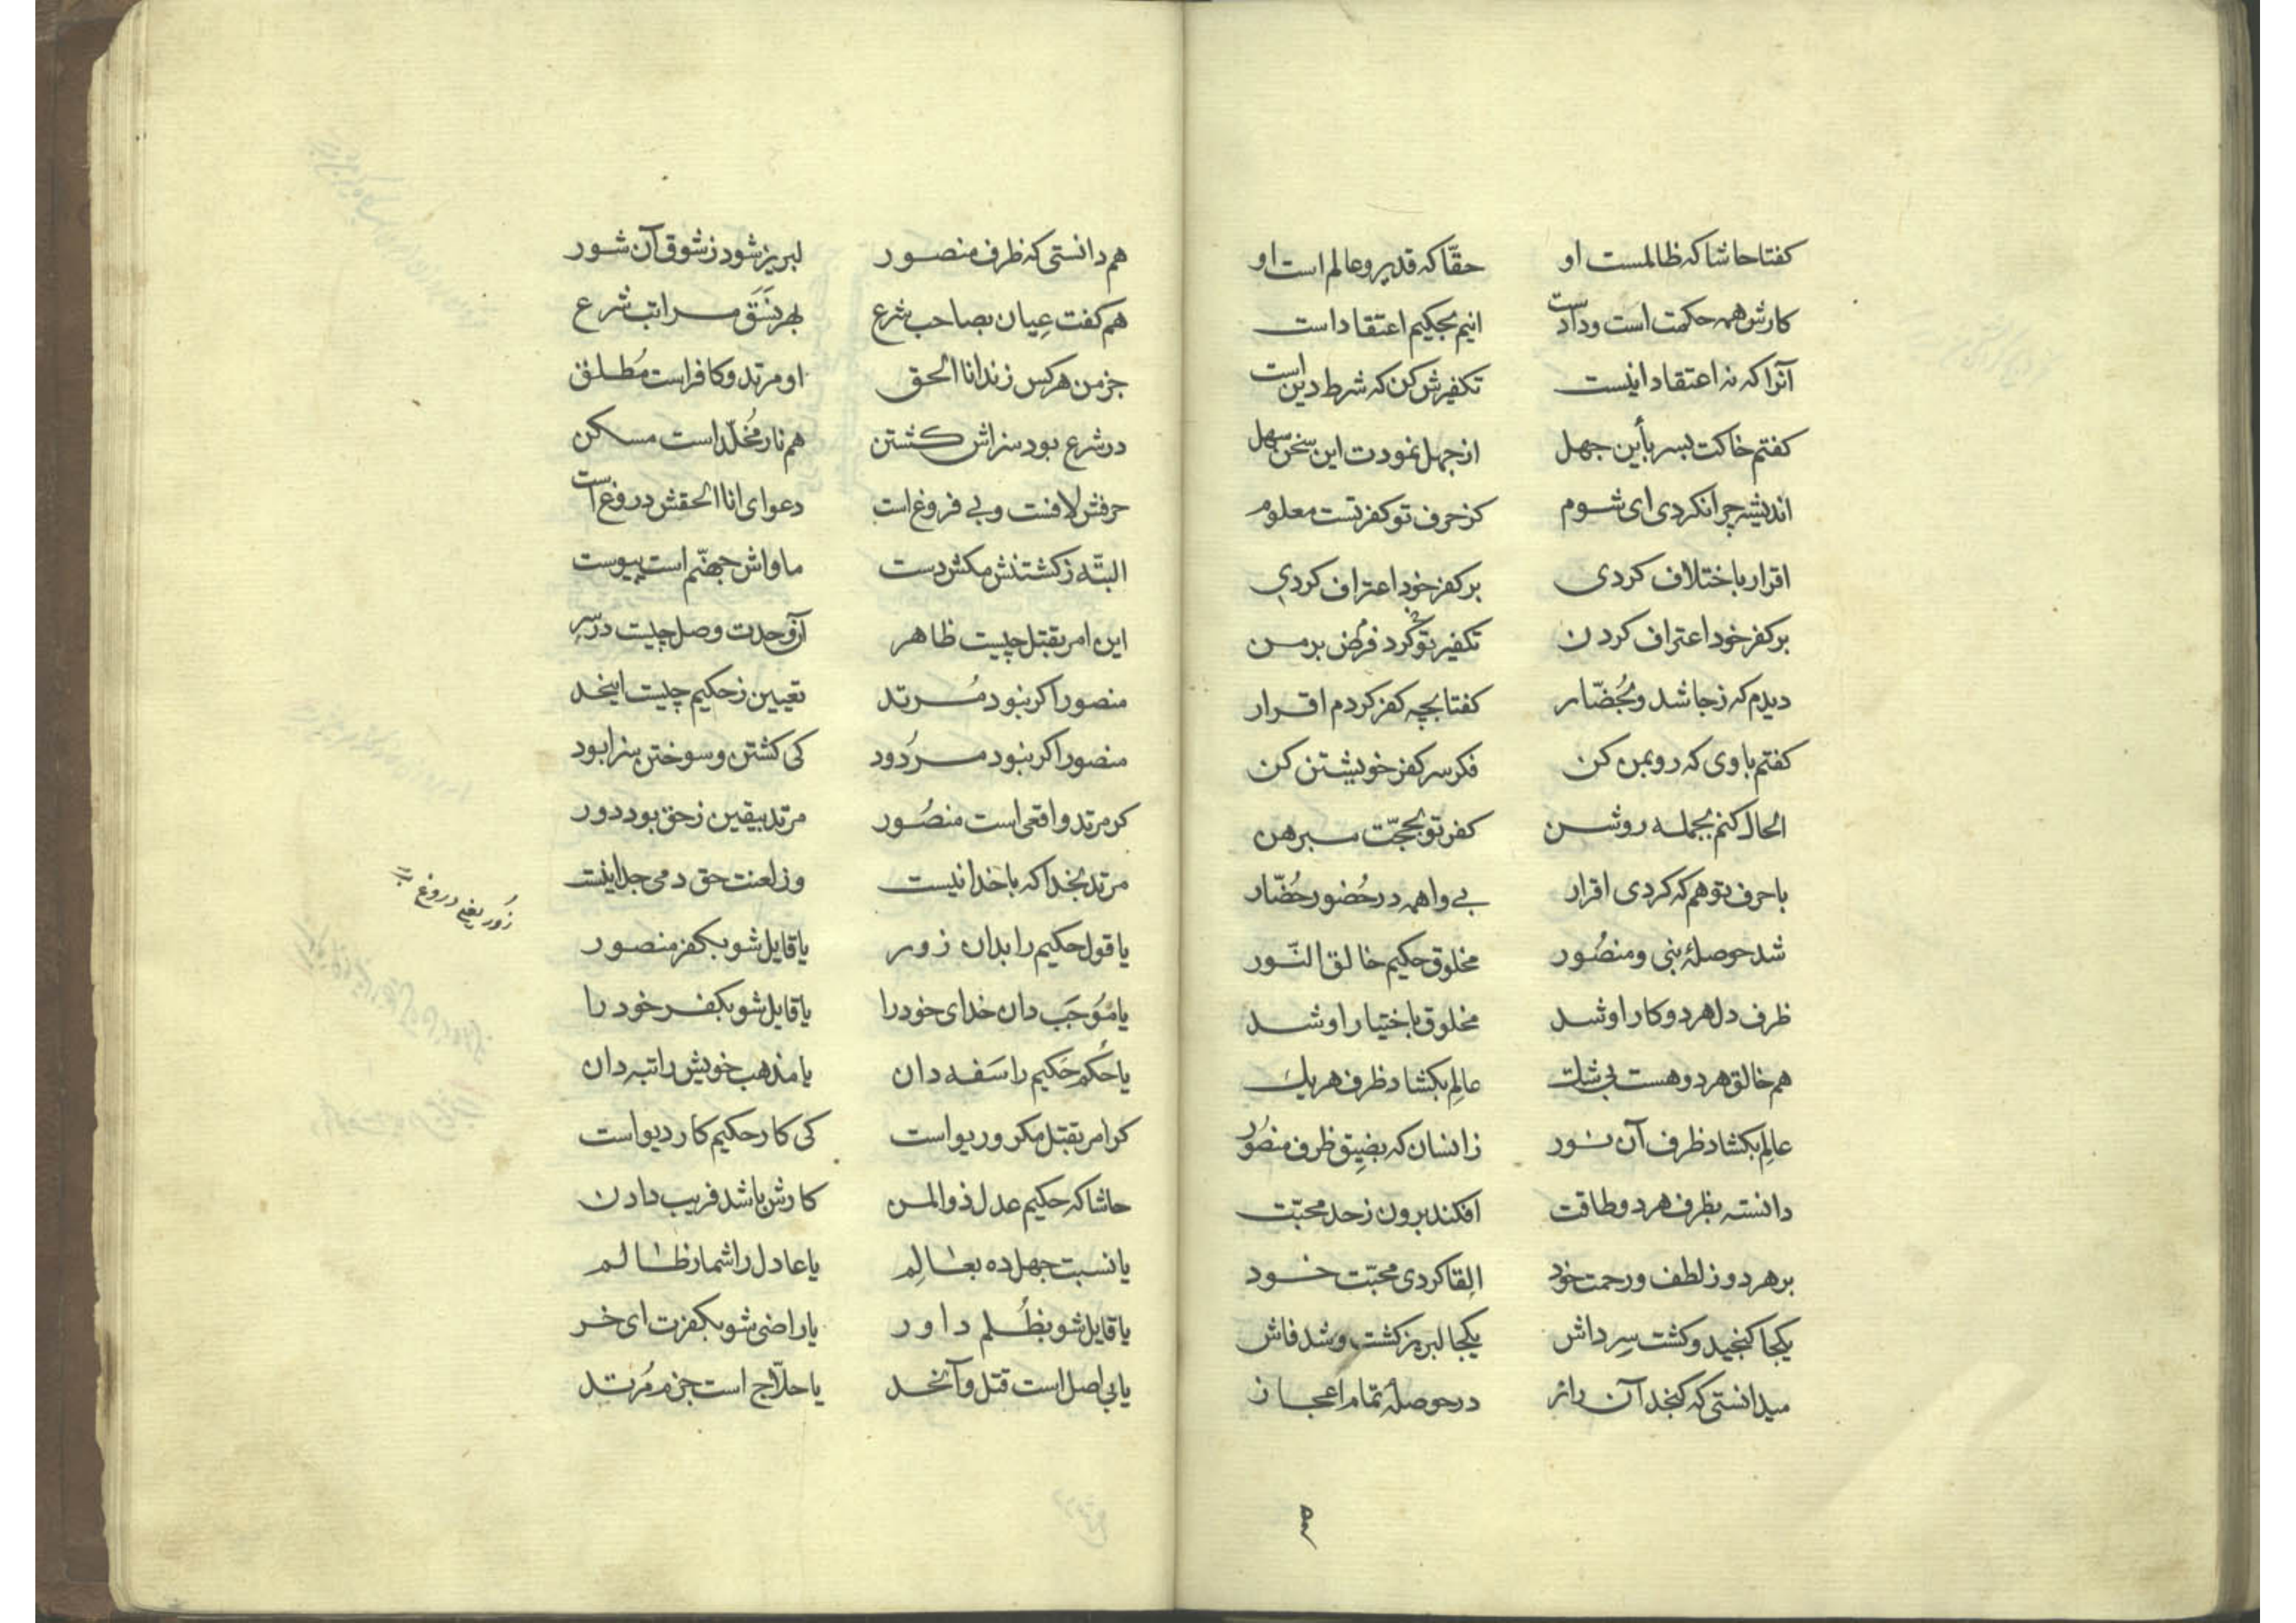 کفتا حاشا که ظالمست او حقّا که قدیر و عالم است او
کارش همه حکمت است و دادست اینم بحکیم اعتقاد است
آنرا که نه اعتقاد اینست تکفیرش کن که شرط دین است
کفتم خاکت بسر باین جهل از جهل نمودت این سخن سهل
اندیشه چرا نکردی ای شوم کز حرف تو کفر تست معلوم
اقرار باختلاف کردی بر کفر خود اعتراف کردی
بر کفر خود اعتراف کردن تکفیر تو کرد فرض بر من
دیدم که زجا شد و بحُضّار کفتا بچه کفر کردم اقرار
کفتم با وی که رو بمن کن فکر سر کفر خویشتن کن
الحال کنم بجمله روشن کفر تو بحجّت مبرهن
با حرف تو هم که کردی اقرار بی واهمه در حُضور حُضّار
شد حوصلهٔ نبی و منصُور مخلوق حکیم خالق النّور
ظرف دل هر دو کار او شد مخلوق باختیار او شد
هم خالق هر دو هست بی شک عالِم بکشاد ظرف هر یک
عالِم بکشاد ظرف آن نور زانسان که بضیِق ظرف منصُور
دانسته بظرف هر دو طاقت افکند برون زحد محبّت
بر هر دو ز لطف و رحمت خود اِلقا کردی محبّت خود
یکجا کنجید و کشت سِر داش یکجا لبریز کشت و شد فاش
میدانستی که کنجد آن راز در حوصلهٔ تمام اعجاز
هم
هم دانستی که ظرف منصور لبریز شود ز شوق آن شور
هم کفت عِیان بصاحب شرع بهر نَسَق مراتب شرع
جز من هر کس زند انا الحق او مرتد و کافر است مُطلق
در شرع بود سزاش کشتن هم نار مُخلّد است مسکن
حرفش لافست و بی فروغ است دعوای انا الحقش دروغ است
البتّه ز کشتنش مکش دست ماواش جهنّم است پیوست
این امر بقتل چیست ظاهر آن وحدت وصل چیست در سِر
منصور اکر نبود مُرتد تعیین ز حکیم چیست اینحد
منصور اکر نبود مردُود کی کشتن و سوختن سزا بود
کر مرتد واقعی است منصُور مرتد بیقین ز حق بود دور
مرتد بخدا که با خدا نیست وز لعنت حق دمی جدا نیست
یا قول حکیم را بدان زور یا قایل شو بکفر منصور
زُور یعنی دروغ
یا مُوجَب دان خدای خود را یا قایل شو بکفر خود را
یا حُکم حَکیم را سَفه دان یا مذهب خویش را تبه دان
کر امر بقتل مکر و ریو است کی کار حکیم کار دیو است
حاشا که حکیم عدل ذوالمن کارش باشد فریب دادن
یا نسبت جهل ده بعالِم یا عادل را شمار ظالم
یا قایل شو بظُلم داور یا راضی شو بکفرت ای خر
یا بی اصل است قتل و آنحد یا حلّاج است جزم مُرتد